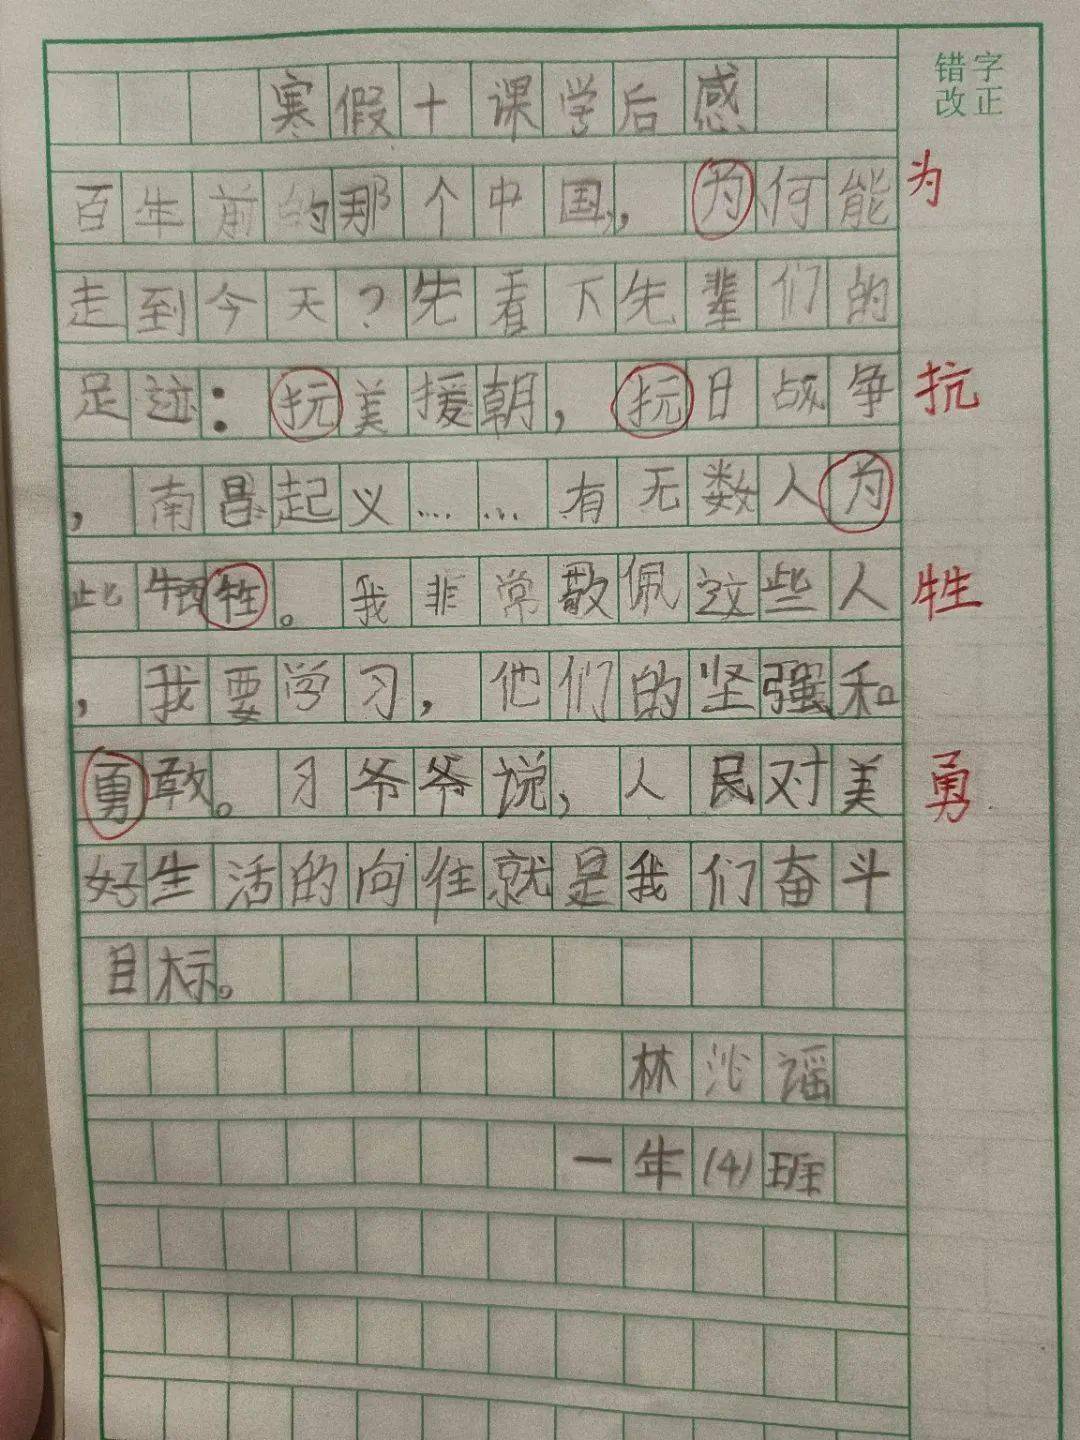 错字
改正
寒假十课学后感
百年前的那个中国，为何能
为
走到今天？先看下先辈们的
足迹：抗美援朝，抗日战争
抗
，南昌起义……有无数人为
此牺牲。我非常敬佩这些人
牲
，我要学习，他们的坚强和
勇敢。习爷爷说，人民对美
勇
好生活的向往就是我们奋斗
目标。
林沁谣
一年(4)班